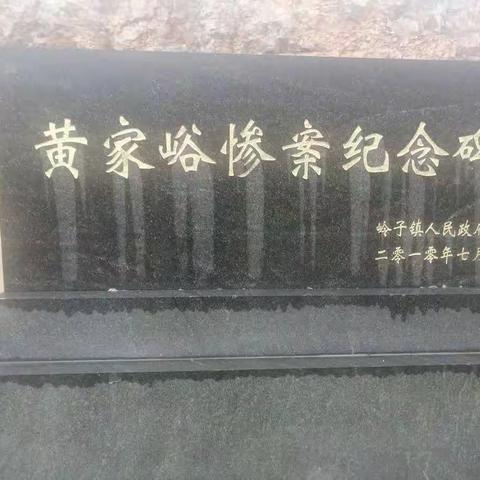 黄家峪惨案纪念碑
岭子镇人民政府
二零一零年七月